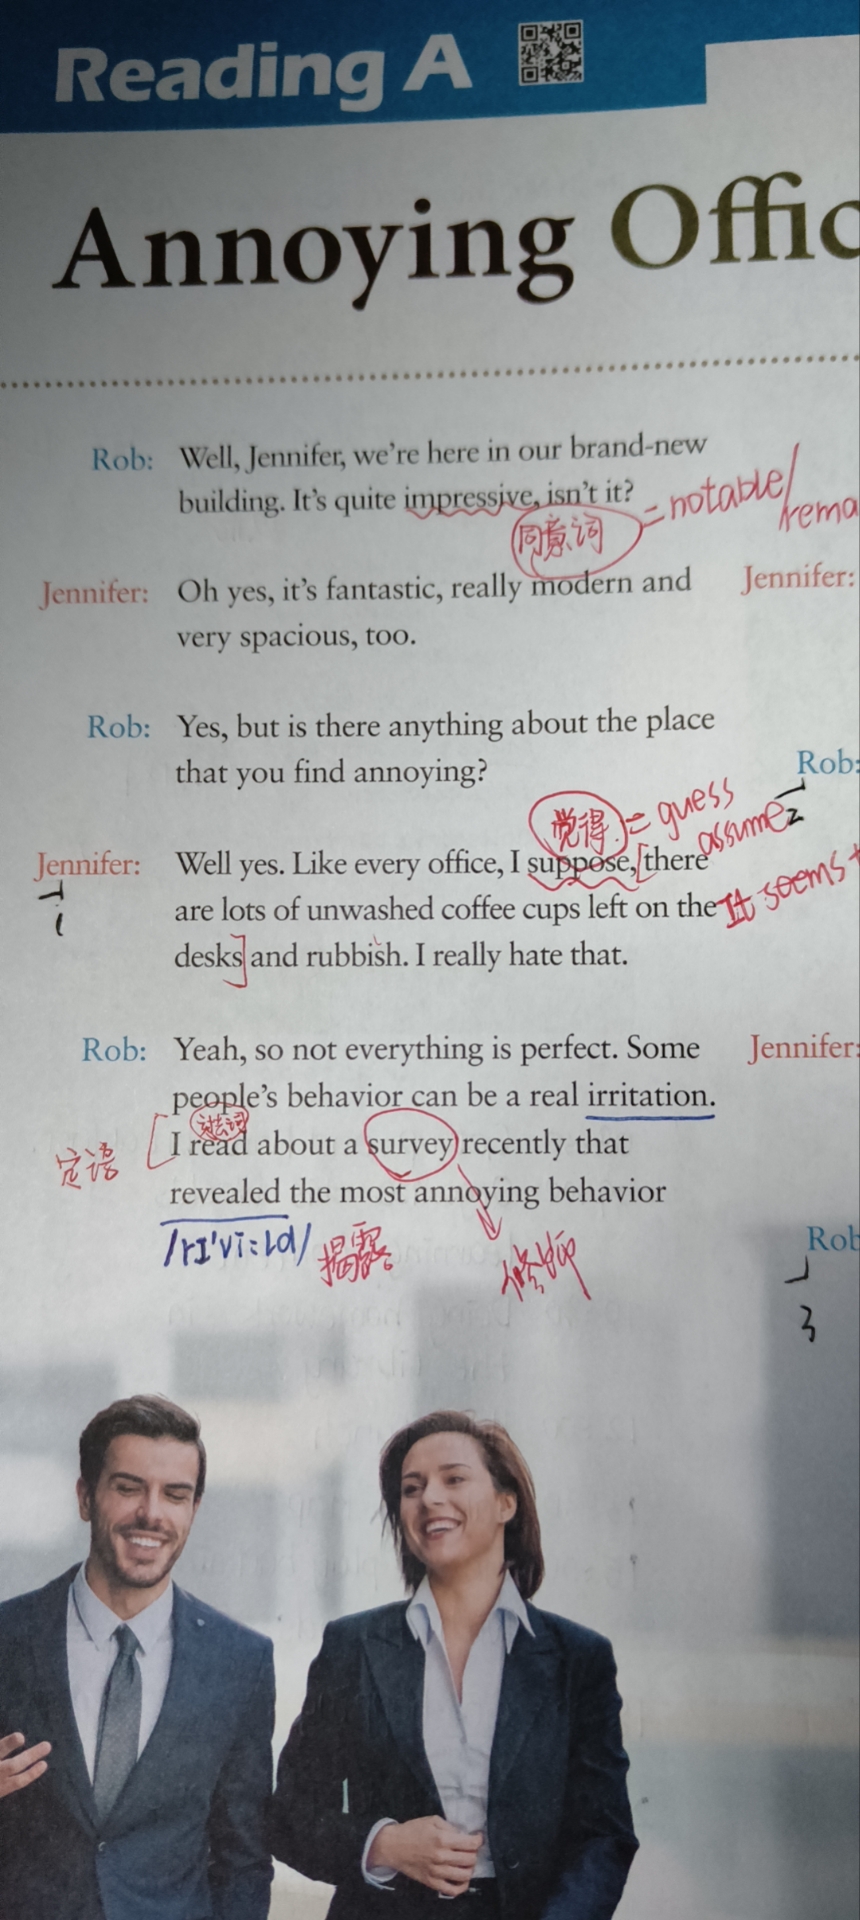 Reading A
Annoying Offic
Rob: Well, Jennifer, we're here in our brand-new
building. It's quite impressive, isn't it?
同意词 = notable/
rema
Jennifer: Oh yes, it's fantastic, really modern and
very spacious, too.
Rob: Yes, but is there anything about the place
that you find annoying?
觉得 = guess
assume
Jennifer: Well yes. Like every office, I suppose, [there
are lots of unwashed coffee cups left on the
desks] and rubbish. I really hate that.
1
Rob: Yeah, so not everything is perfect. Some
people's behavior can be a real irritation.
过去词
定语 [I read about a survey recently that
revealed the most annoying behavior
/rɪ'vi:ld/ 揭露
修饰
Jennifer:
Rob:
2
It seems t
Jennifer:
Rob
3